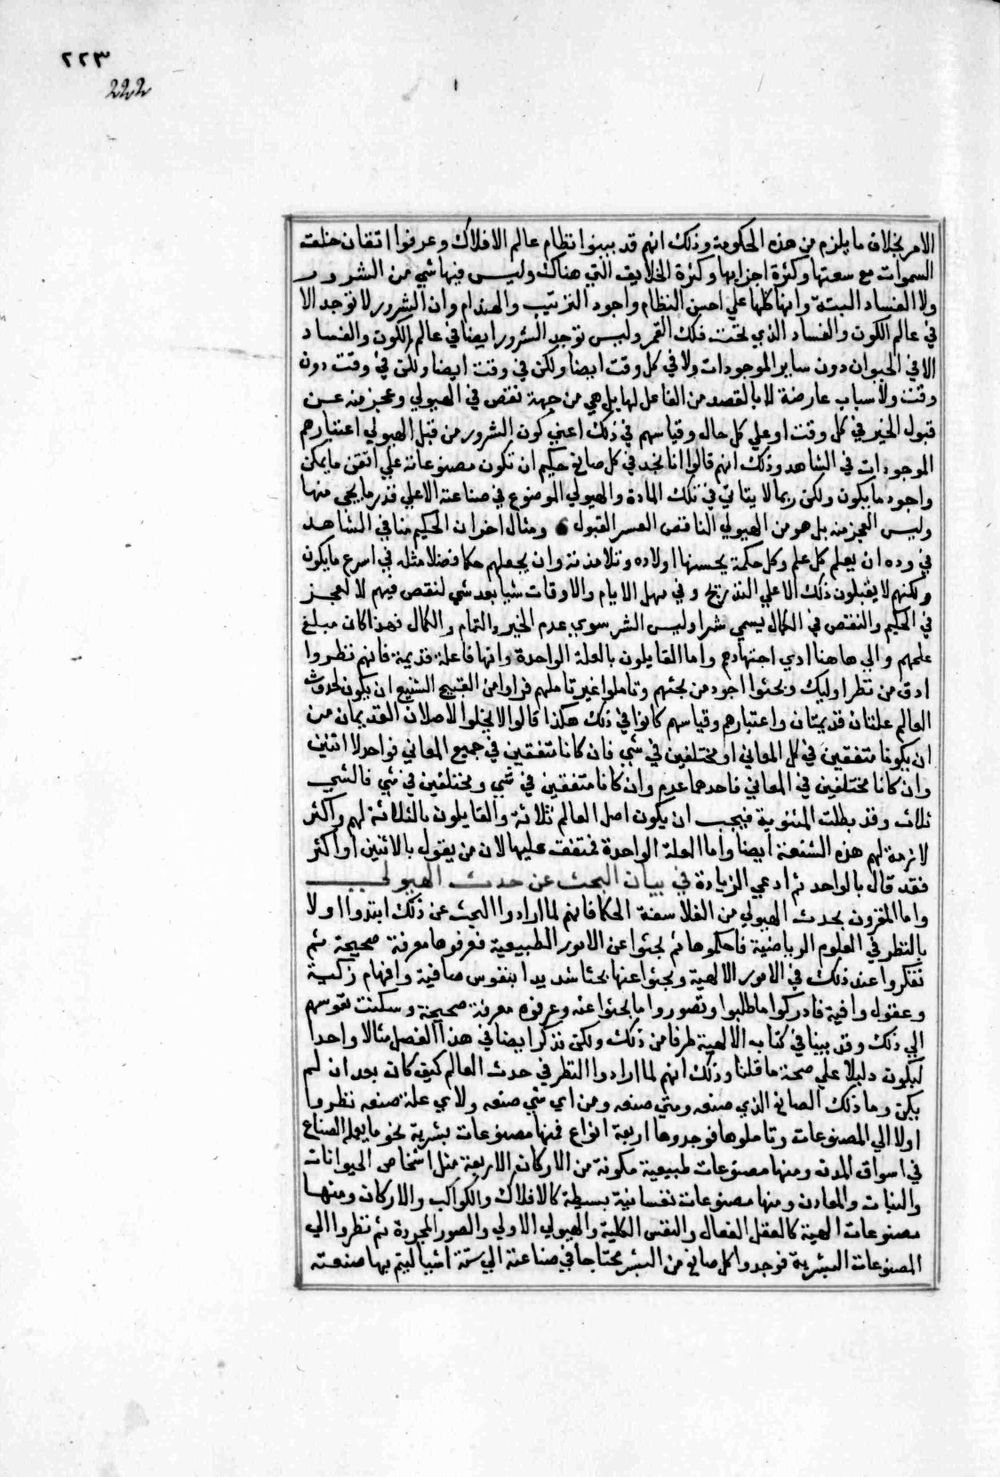 ٢٢٣
222
الامر بخلاف ما يلزم من هذه الحكومة وذلك انهم قد بينوا نظام عالم الافلاك وعرفوا اتقان خلقت
السموات مع سعتها وكثرة اجزايها وكثرة الخلايق التي هناك وليس فيها شي من الشرور
ولا الفساد البتة وانها كلها علي احسن النظام واجود الترتيب والهندام وان الشرور لا توجد الا
في عالم الكون والفساد الذي تحت فلك القمر وليس توجد الشرور ايضا في عالم الكون والفساد
الا في الحيوان دون ساير الموجودات ولا في كل وقت ايضا ولكن في وقت ايضا ولكن في وقت دون
وقت ولاسباب عارضة لا بالقصد من الفاعل لها بل هي من جهة نقص في الهيولي وعجز منه عن
قبول الخير في كل وقت او علي كل حال وقياسهم في ذلك اعني كون الشرور من قبل الهيولي اعتبارهم
الموجودات في الشاهد وذلك انهم قالوا انا نجد في كل صانع حكيم ان تكون مصنوعاته علي اتقن ما يمكن
واجود ما يكون ولكن ربما لا يتاتي في تلك المادة والهيولي الموضوع في صناعته الا علي قدر ما يجي منها
وليس العجز منه بل هو من الهيولي الناقص العسر القبول ومثال اخر ان الحكيم منا في الشاهد
في وده ان يعلم كل علم وكل حكمة يحسنها اولاده وتلامذته وان يجعلهم حكما فضلا مثله في اسرع ما يكون
ولكنهم لا يقبلون ذلك الا علي التدريج وفي مهل الايام والاوقات شيا بعد شي لنقص فيهم لا لعجز
في الحكيم والنقص في الكمال يسمي شرا وليس الشر سوي عدم الخير والتمام والكمال فهذا كان مبلغ
علمهم والي هاهنا ادي اجتهادهم واما القايلون بالعلة الواحدة وانها فاعلة قديمة فانهم نظروا
ادق من نظر اوليك وبحثوا اجود من بحثهم وتاملوا غير تاملهم فراوا من القبيح الشنيع ان يكون لحدوث
العالم علتان قديمتان واعتبارهم وقياسهم كانوا في ذلك هكذا قالوا لا يخلوا الاصلان القديمان من
ان يكونا متفقين في كل المعاني او مختلفين في شي فان كانا متفقين في جميع المعاني فواحد لا اثنين
وان كانا مختلفين في المعاني فاحدهما عدم وان كانا متفقين في شي ومختلفين في شي فالشي
ثلاث وقد بطلت المثنوية فيجب ان يكون اصل العالم ثلاثة والقايلون بالثلاثة لهم واكثر
لازمة لهم هذه الشنعة ايضا واما العلة الواحدة فمتفق عليها لان من يقول بالاثنين او اكثر
فقد قال بالواحد ثم ادعي الزيادة في بيان البحث عن حدث الهيولي
واما المقرون بحدث الهيولي من الفلاسفة الحكما فانهم لما ارادوا البحث عن ذلك ابتدوا اولا
بالنظر في العلوم الرياضية فاحكموها ثم بحثوا عن الامور الطبيعية فعرفوها معرفة صحيحة ثم
تفكروا عند ذلك في الامور الالهية وبحثوا عنها بحثا شديدا بنفوس صافية وافهام زكية
وعقول وافية فادركوا ما طلبوا وتصوروا ما بحثوا عنه وعرفوه معرفة صحيحة وسكنت نفوسهم
الي ذلك وقد بينا في كتابه الالهية طرفا من ذلك ولكن نذكر ايضا في هذا الفصل مثالا واحدا
ليكون دليلا علي صحة ما قلنا وذلك انهم لما ارادوا النظر في حدث العالم كيف كان بعد ان لم
يكن وما ذلك الصانع الذي صنعه ومتي صنعه ومن اي شي صنعه ولاي علة صنعه نظروا
اولا الي المصنوعات وتاملوها فوجدوها اربعة انواع فمنها مصنوعات بشرية نحو ما يعمله الصناع
في اسواق المدن ومنها مصنوعات طبيعية مكونة من الاركان الاربعة مثل اشخاص الحيوانات
والنبات والمعادن ومنها مصنوعات نفسانية بسيطة كالافلاك والكواكب والاركان ومنها
مصنوعات الهية كالعقل الفعال والنفس الكلية والهيولي الاولي والصور المجردة ثم نظروا الي
المصنوعات البشرية فوجدوا كل صانع من البشر محتاجا في صناعته الي ستة اشيا ليتم بها صنعته